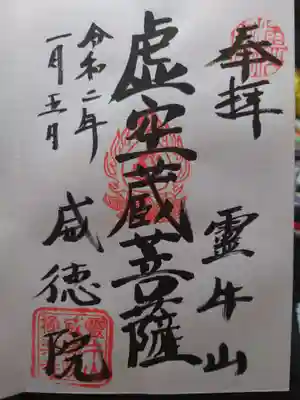 奉拝
靈牛山
虚空蔵菩薩
令和二年
一月五日
威徳院